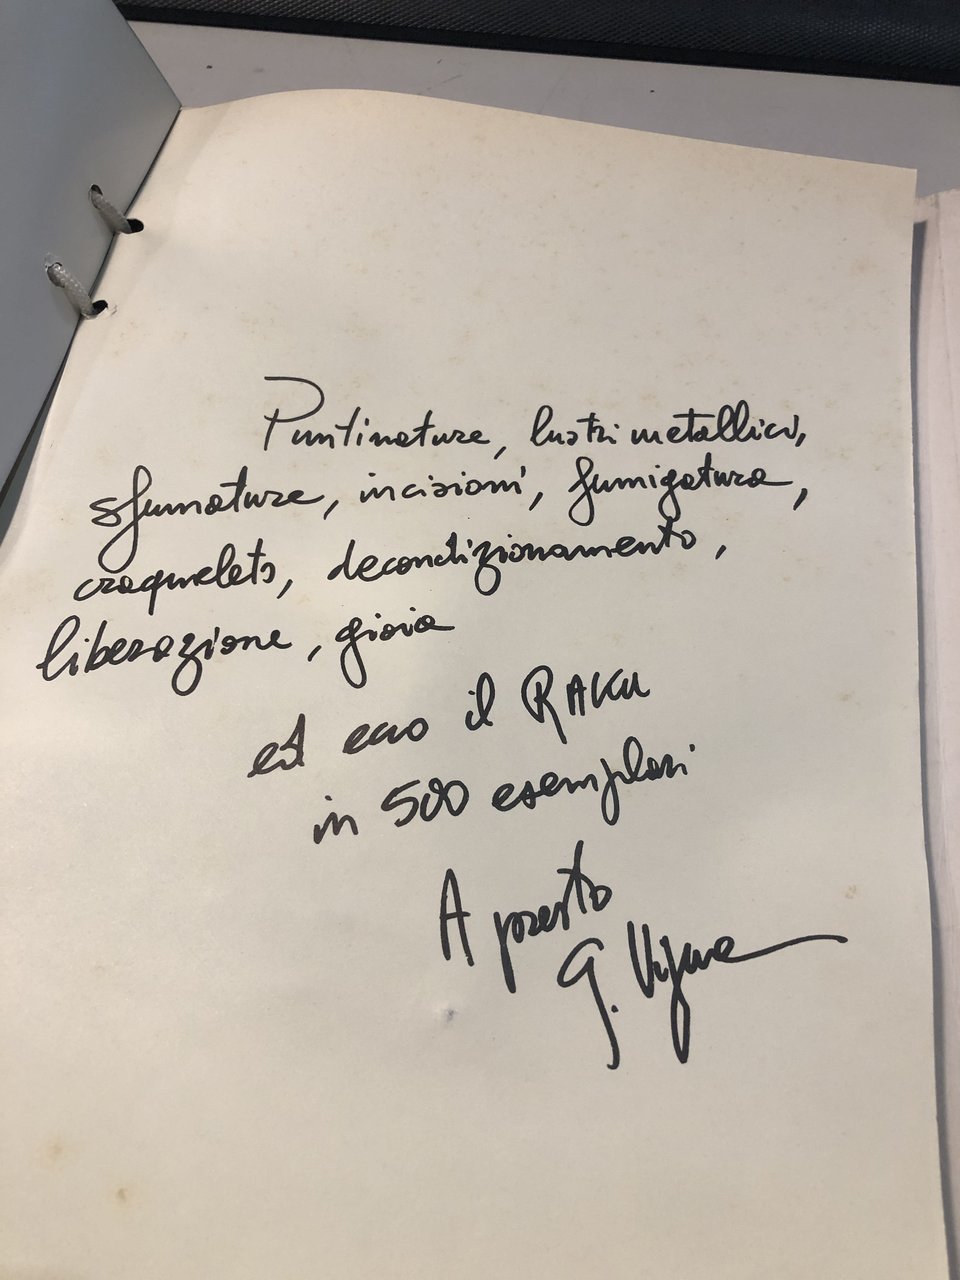 Puntinature, lustri metallici,
sfumature, incisioni, fumigatura,
craquelets, decondizionamento,
liberazione, gioia
ed ecco il RAKU
in 500 esemplari
A presto
G. Vigna